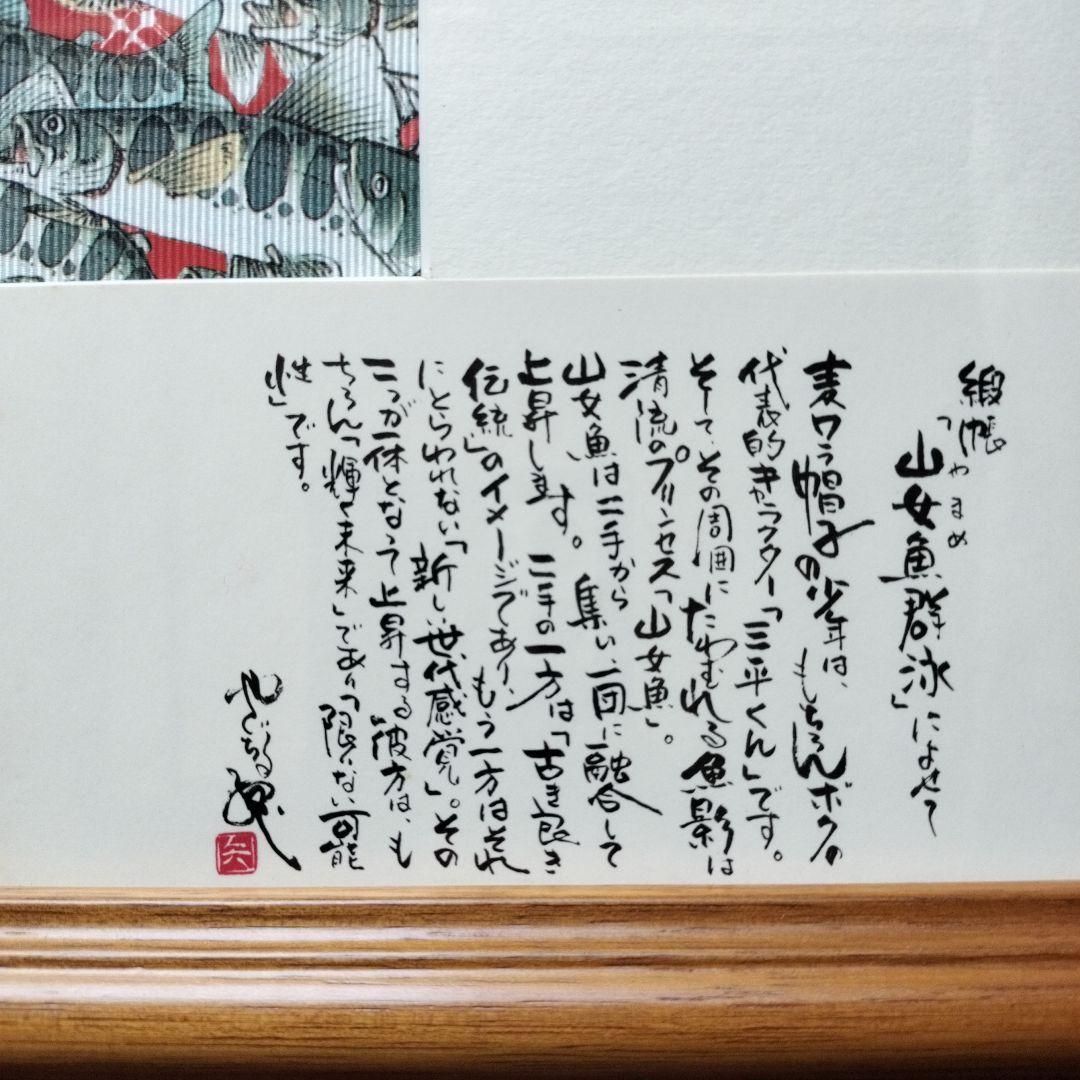 緞帳
「山女魚群泳」によせて
やまめ
麦ワラ帽子の少年は、もちろんボクの
代表的キャラクター「三平くん」です。
そして、その周囲にたわむれる魚影は
清流のプリンセス「山女魚」。
山女魚は二手から集い、一団に融合して
上昇します。二手の一方は「古き良き
伝統」のイメージであり、もう一方はそれ
にとらわれない「新しい世代感覚」。その
二つが一体となって上昇する彼方は、も
ちろん「輝く未来」であり「限りない可能
性」です。
矢口高雄
矢